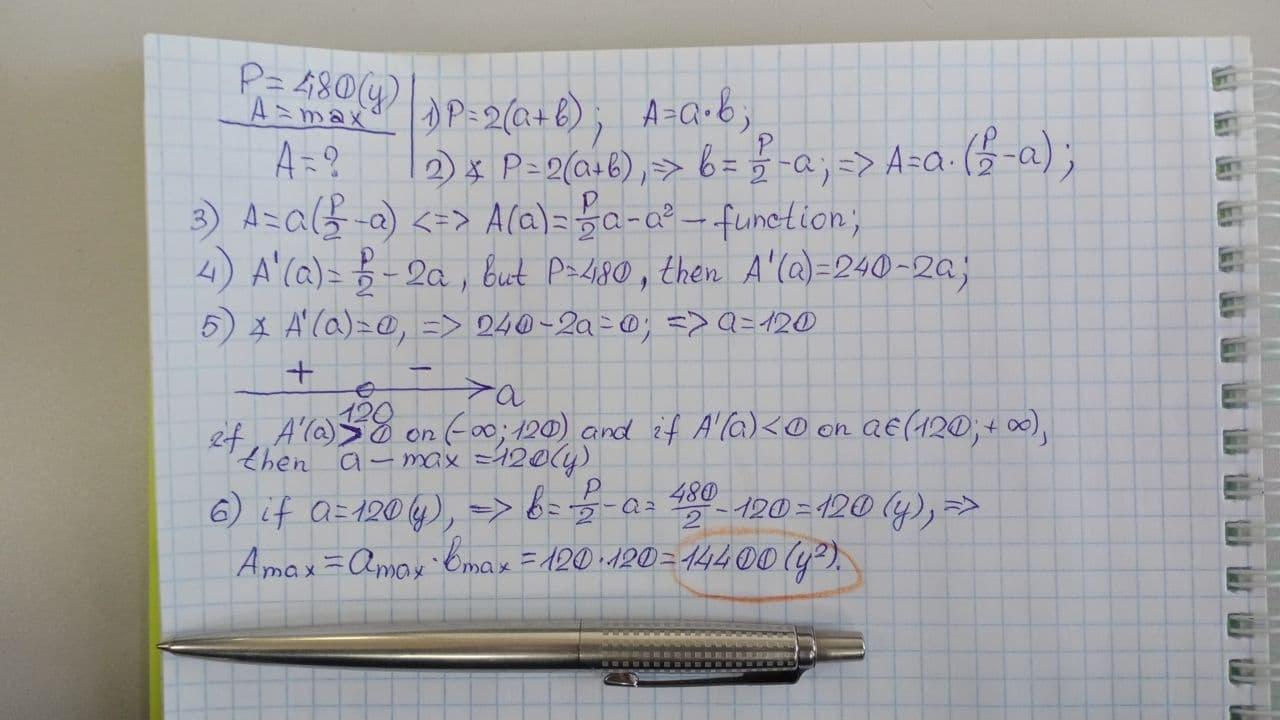 P=480(y)
A=max
A=?
1) P=2(a+b); A=a·b;
2) ∡ P=2(a+b), => b=P/2-a; => A=a·(P/2-a);
3) A=a(P/2-a) <=> A(a)=P/2a-a² - function;
4) A'(a)=P/2-2a, but P=480, then A'(a)=240-2a;
5) ∡ A'(a)=0, => 240-2a=0; => a=120
+ -
120 a
if A'(a)>0 on (-∞;120) and if A'(a)<0 on a∈(120;+∞),
then a-max=120(y)
6) if a=120(y), => b=P/2-a=480/2-120=120(y), =>
Amax=amax·bmax=120·120=14400(y²).